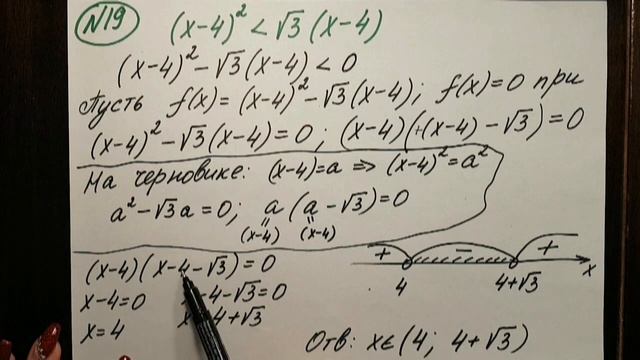 N19 (x-4)² < √3 (x-4)
(x-4)² - √3 (x-4) < 0
Пусть f(x) = (x-4)² - √3(x-4); f(x)=0 при
(x-4)² - √3(x-4) = 0; (x-4)((x-4) - √3) = 0
На черновике: (x-4)=a => (x-4)² = a²
a² - √3 a = 0; a (a - √3) = 0
(x-4) (x-4)
(x-4)(x-4-√3) = 0
x-4=0 x-4-√3=0
x=4 x=4+√3
+ - +
4 4+√3 x
Отв: x∈(4; 4+√3)